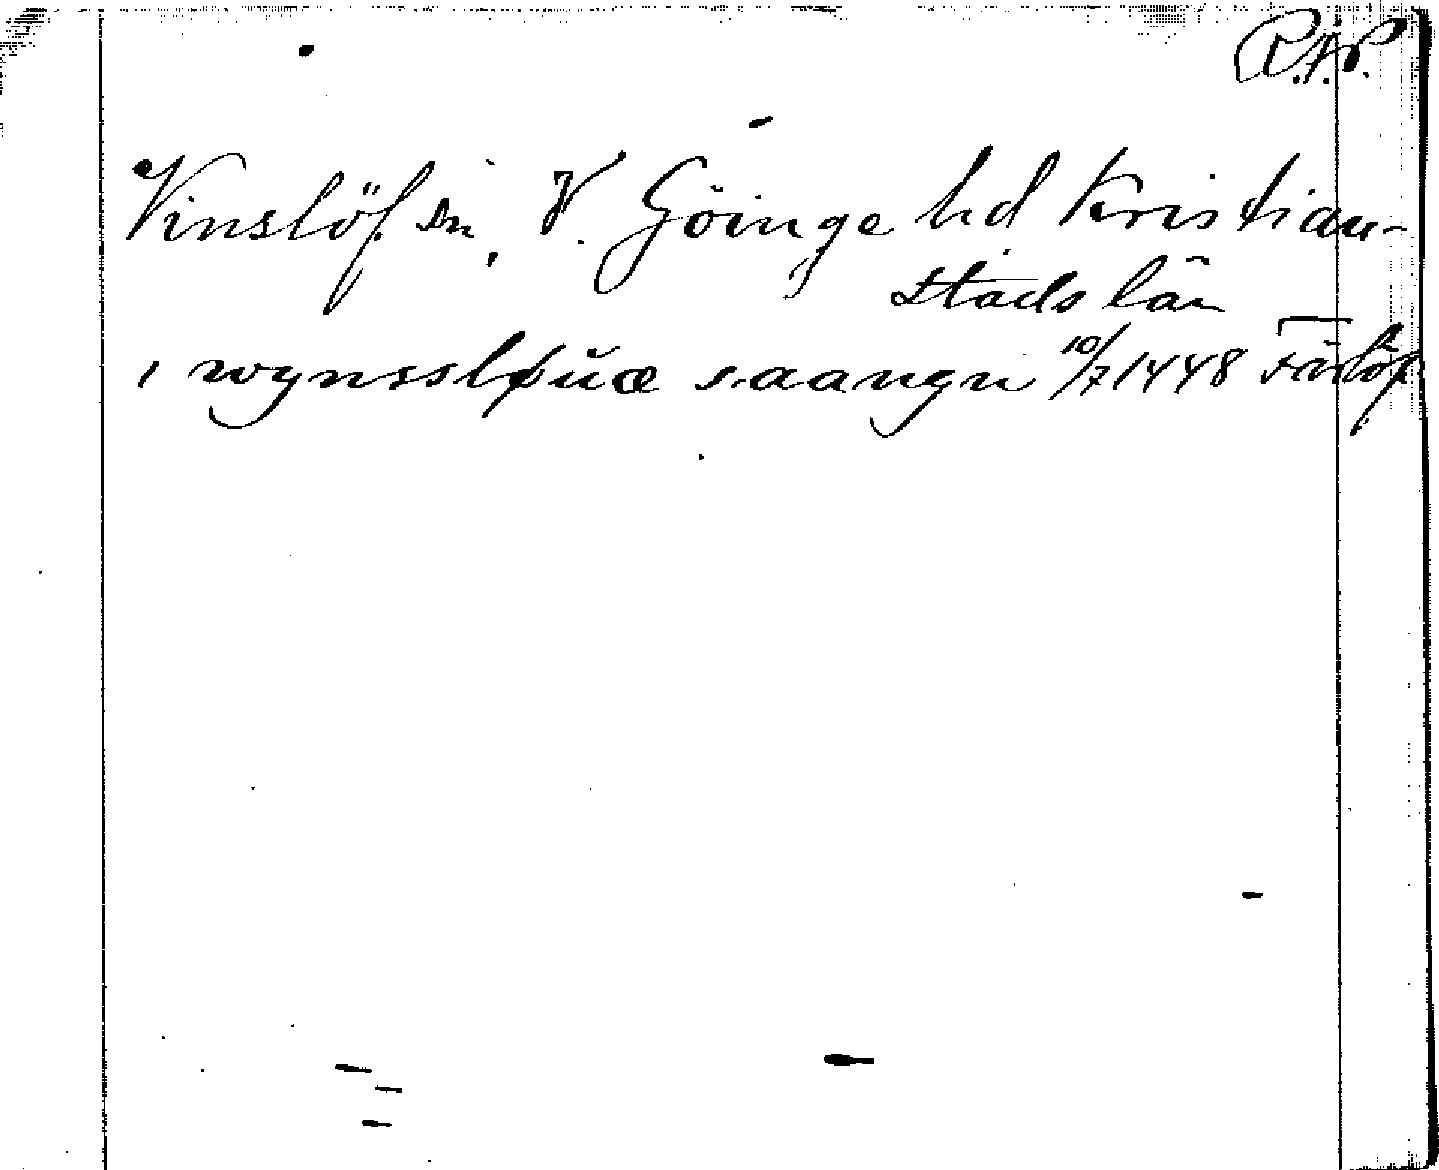 R.A.P.
Vinslöf sn, V. Göinge hd Kristian-
stads län
i wynssløuæ saangn 10/7 1448 Färlöf